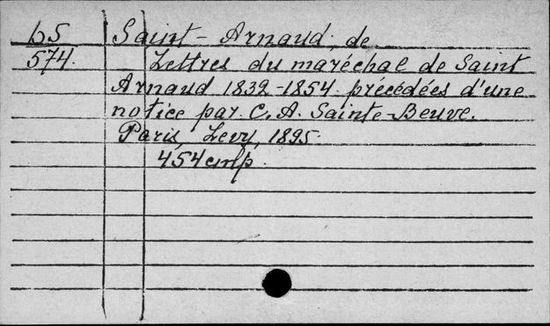 b5
574.
Saint-Arnaud, de
Lettres du maréchal de Saint
Arnaud 1832-1854 précédées d'une
notice par C. A. Sainte-Beuve.
Paris, Levy, 1895.
454 стр.